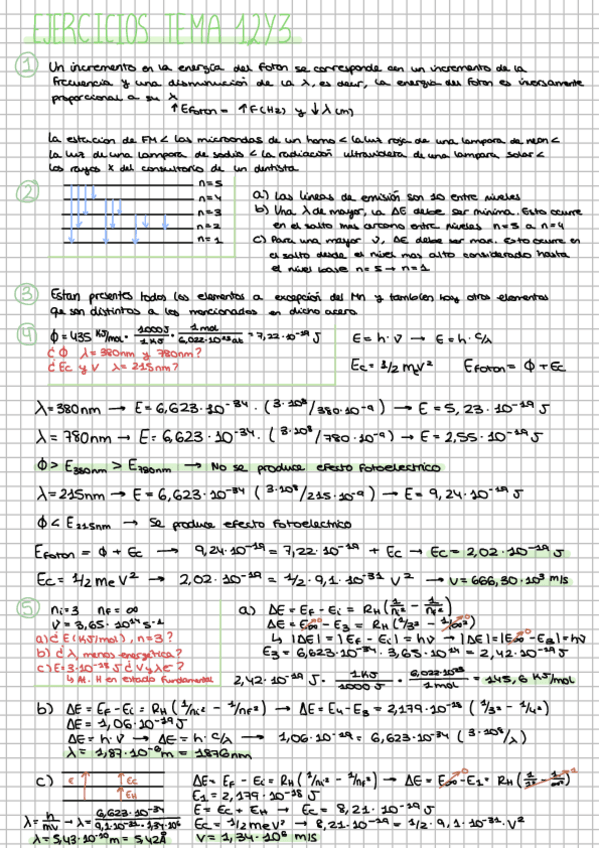 EJERCICIOS TEMA 1 2 Y 3
1 Un incremento en la energía del foton se corresponde con un incremento de la
frecuencia y una disminución de la λ, es decir, la energía del foton es inversamente
proporcional a su λ
↑Efoton = ↑F(Hz) y ↓λ(m)
La estacion de FM < las microondas de un horno < la luz roja de una lampara de neon <
la luz de una lampara de sodio < la radiación ultravioleta de una lampara solar <
los rayos X del consultorio de un dentista
2
n=5
n=4
n=3
n=2
n=1
a) Las lineas de emisión son 10 entre niveles
b) Una λ de mayor, la ΔE debe ser minima. Esto ocurre
en el salto mas cercano entre niveles n=5 a n=4
c) Para una mayor ν, ΔE debe ser max. Esto ocurre en
el salto desde el nivel mas alto considerado hasta
el nivel base n=5→n=1
3 Estan presentes todos los elementos a excepcion del Mn y tambien hay otros elementos
que son distintos a los mencionados en dicho acero
4 Φ = 435 KJ/mol · 1000J/1KJ · 1mol/6,022·10²³at = 7,22·10⁻¹⁹ J
E = h·ν → E = h·c/λ
¿Φ λ=380nm y 780nm?
¿Ec y V λ=215nm?
Ec = 1/2 meV² Efoton = Φ + Ec
λ=380nm → E = 6,623·10⁻³⁴ · (3·10⁸/380·10⁻⁹) → E = 5,23·10⁻¹⁹ J
λ = 780nm → E = 6,623·10⁻³⁴ · (3·10⁸/780·10⁻⁹) → E = 2,55·10⁻¹⁹ J
Φ > E380nm > E780nm → No se produce efecto fotoelectrico
λ=215nm → E = 6,623·10⁻³⁴ (3·10⁸/215·10⁻⁹) → E = 9,24·10⁻¹⁹ J
Φ < E215nm → Se produce efecto fotoelectrico
Efoton = Φ + Ec → 9,24·10⁻¹⁹ = 7,22·10⁻¹⁹ + Ec → Ec = 2,02·10⁻¹⁹ J
Ec = 1/2 me V² → 2,02·10⁻¹⁹ = 1/2·9,1·10⁻³¹ V² → V = 666,30·10³ m/s
5 ni=3 nf=∞
ν = 3,65·10¹⁴ s⁻¹
a) ¿E (KJ/mol), n=3?
b) ¿λ menos energética?
c) E=3·10⁻¹⁸ J ¿V y λ e⁻?
↳ At. H en estado fundamental
a) ΔE = Ef - Ei = RH (1/ni² - 1/nf²)
ΔE = E∞ - E3 = RH (1/3² - 1/∞²)
↳ |ΔE| = |Ef - Ei| = hν → |ΔE| = |E∞ - E3| = hν
E3 = 6,623·10⁻³⁴ · 3,65·10¹⁴ = 2,42·10⁻¹⁹ J
2,42·10⁻¹⁹ J · 1KJ/1000J · 6,022·10²³/1mol = 145,6 KJ/mol
b) ΔE = Ef - Ei = RH (1/ni² - 1/nf²) → ΔE = E4 - E3 = 2,179·10⁻¹⁸ (1/3² - 1/4²)
ΔE = 1,06·10⁻¹⁹ J
ΔE = h·ν → ΔE = h·c/λ → 1,06·10⁻¹⁹ = 6,623·10⁻³⁴ (3·10⁸/λ)
λ = 1,87·10⁻⁶ m = 1876nm
c) E Ec EH
ΔE = Ef - Ei = RH (1/ni² - 1/nf²) → ΔE = E∞ - E1 = RH (1/1² - 1/∞²)
E1 = 2,179·10⁻¹⁸ J
E = Ec + EH → Ec = 8,21·10⁻¹⁹ J
λ = h/mv → λ = 6,623·10⁻³⁴/9,1·10⁻³¹·1,34·10⁶
Ec = 1/2 meV² → 8,21·10⁻¹⁹ = 1/2·9,1·10⁻³¹·V²
λ = 5,43·10⁻¹⁰ m = 5,42Å
V = 1,34·10⁶ m/s